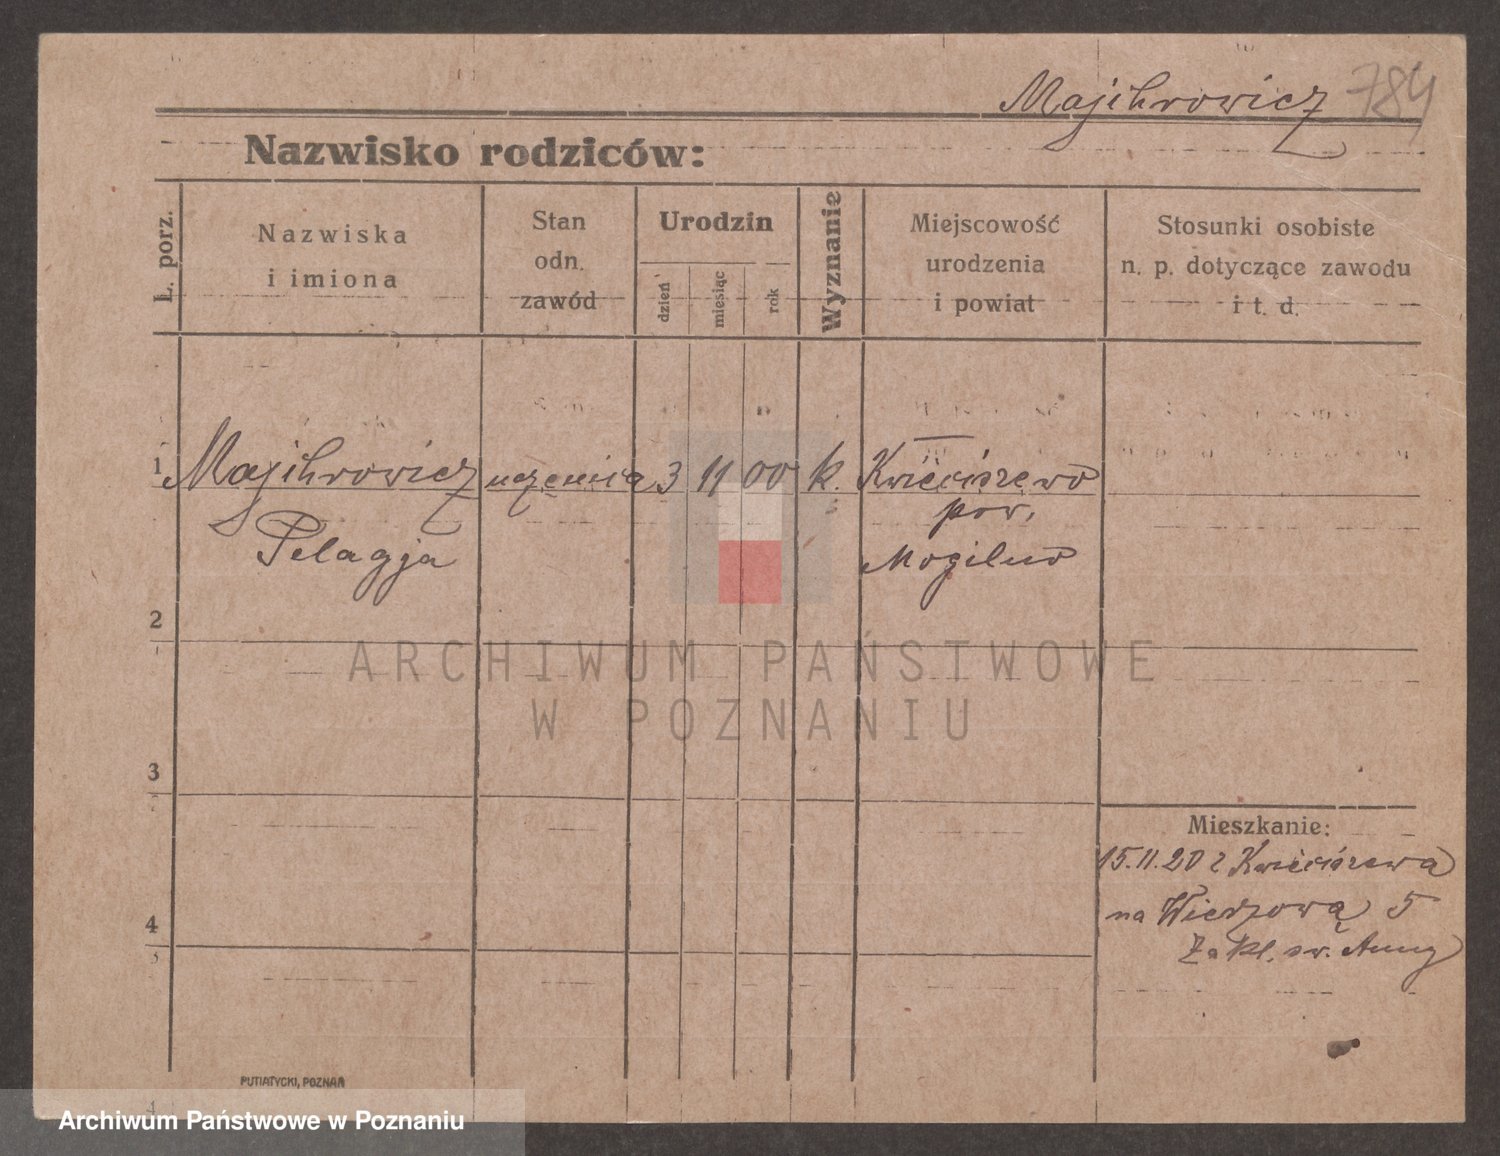 Majchrowicz 784
Nazwisko rodziców:
Ł. porz.
Nazwiska
i imiona
Stan
odn.
zawód
Urodzin
dzień
miesiąc
rok
Wyznanie
Miejscowość
urodzenia
i powiat
Stosunki osobiste
n. p. dotyczące zawodu
i t. d.
1 Majchrowicz uczenica 3 11 00 k. Kwieciszewo
Pelagja pow.
Mogilno
2
3
4
Mieszkanie:
15.11.20 z Kwieciszewa
na Wierzową 5
Zakł. św. Anny
PUTIATYCKI, POZNAŃ
ARCHIWUM PAŃSTWOWE
W POZNANIU
Archiwum Państwowe w Poznaniu